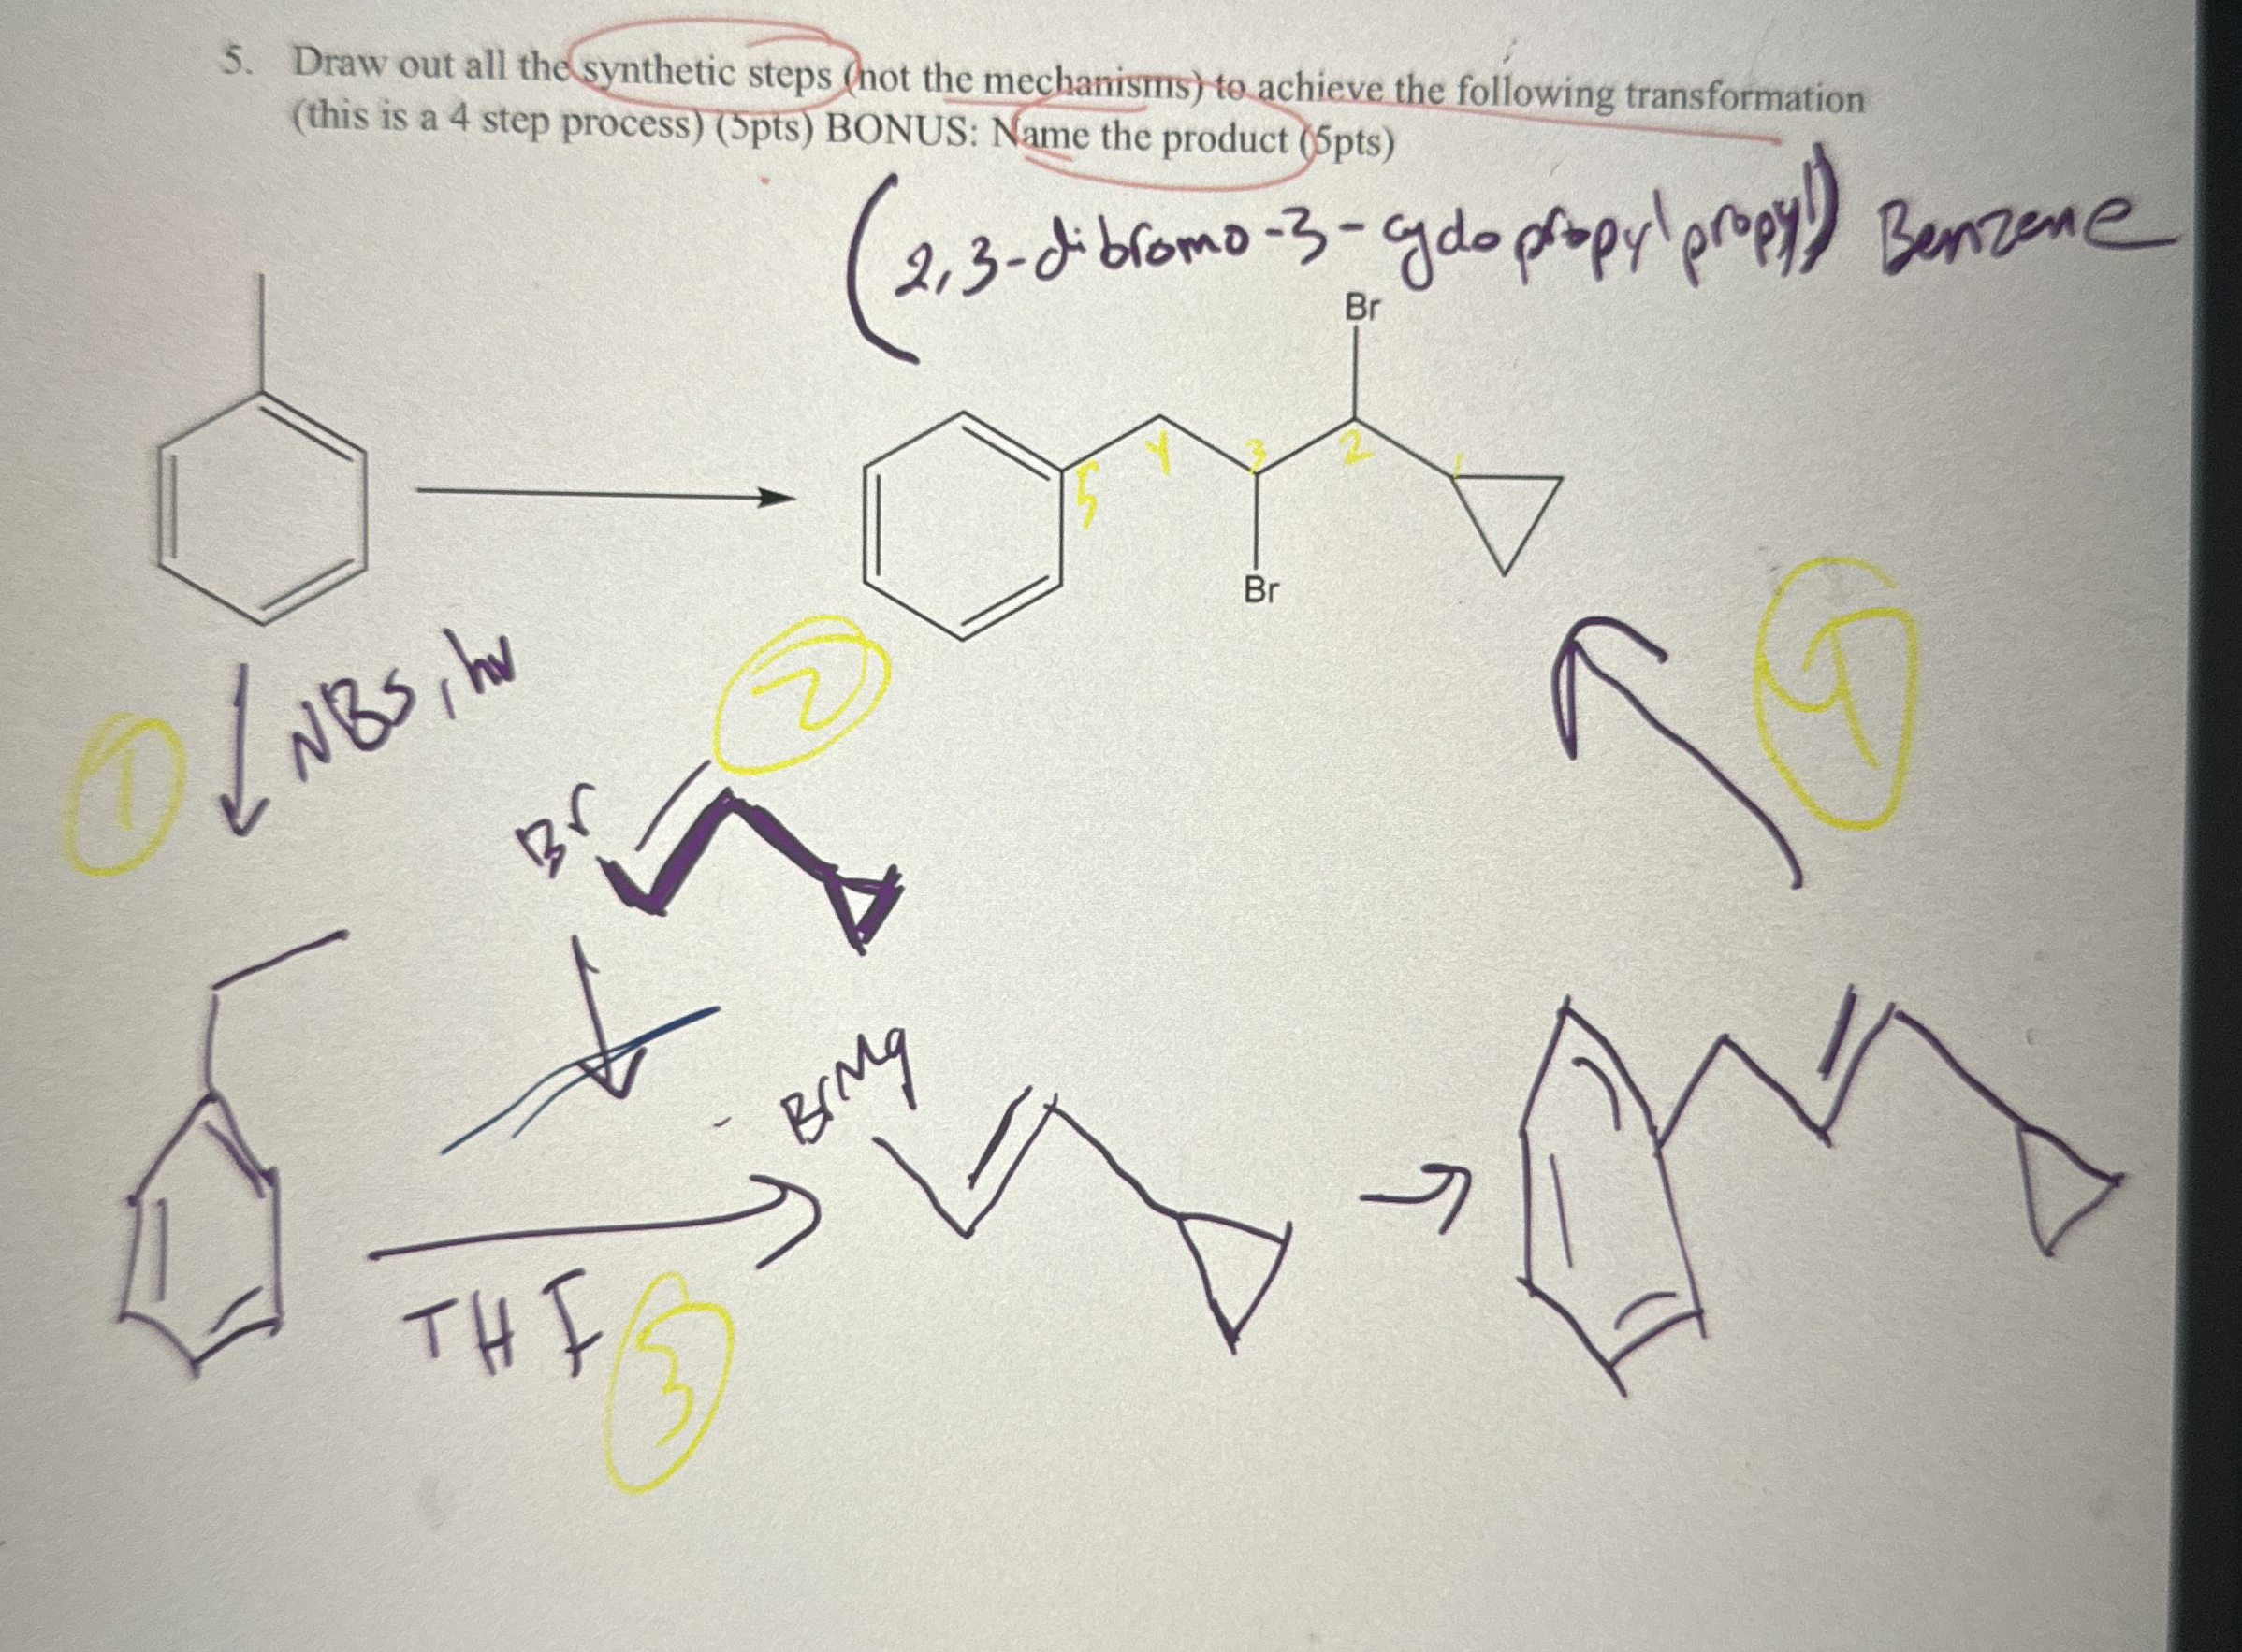 5. Draw out all the synthetic steps (not the mechanisms) to achieve the following transformation
(this is a 4 step process) (5pts) BONUS: Name the product (5pts)
(2,3-dibromo-3-cyclopropylpropyl) Benzene
Br
1
2
3
4
5
Br
NBS, hν
1
2
4
Br
BrMg
THF
3